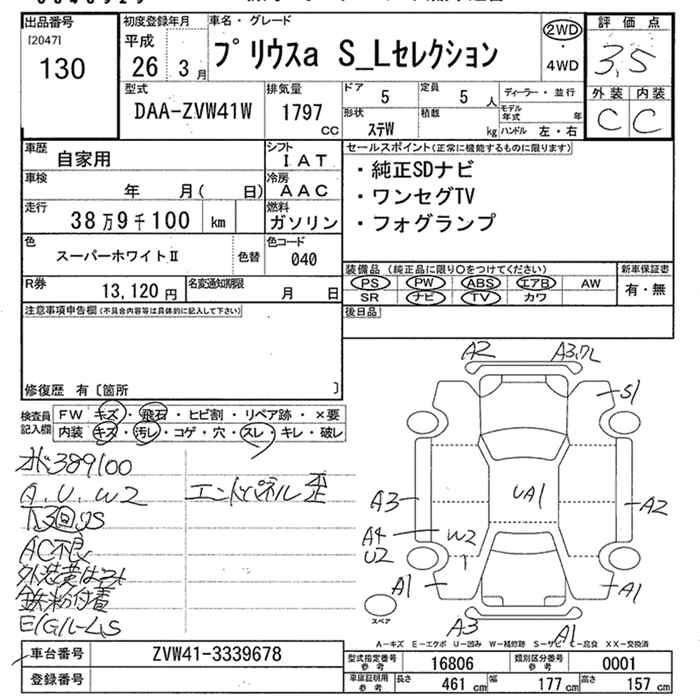 出品番号
[2047]
130
初度登録年月
平成
26 3 月
車名・グレード
プリウスa S_Lセレクション
2WD
・
4WD
評価点
3.5
外装 内装
C C
型式
DAA-ZVW41W
排気量
1797
cc
ドア
5
定員
5 人
形状
ステW
積載
kg
ディーラー・並行
モデル年式 年
ハンドル 左・右
車歴
自家用
シフト
IAT
車検
年 月( 日)
冷房
AAC
走行
38万9千100 km
燃料
ガソリン
色
スーパーホワイトⅡ
色替
色コード
040
R券
13,120円
名変通知期限
月 日
セールスポイント(正常に機能するものに限ります)
・純正SDナビ
・ワンセグTV
・フォグランプ
装備品(純正品に限り○をつけてください)
PS PW ABS エアB AW
SR ナビ TV カワ
新車保証書
有・無
後日品
注意事項申告欄(不具合内容等は具体的に記入して下さい)
修復歴 有〔箇所 〕
検査員記入欄
FW キズ・飛石・ヒビ割・リペア跡・×要
内装 キズ・汚レ・コゲ・穴・スレ・キレ・破レ
389100
A.U.W2 エンドパネル歪
下回りS
AC不良
鉄粉付着
E/GルームS
A2
A3
S1
A3
UA1
A2
A4
U2
W2
A1
A1
A3
A1
スペア
A-キズ E-エクボ U-凹み W-補修跡 S-サビ C-腐食 XX-交換済
車台番号 ZVW41-3339678
登録番号
型式指定番号 参考 16806 類別区分番号 参考 0001
車庫証明用 参考 長さ 461 cm 幅 177 cm 高さ 157 cm